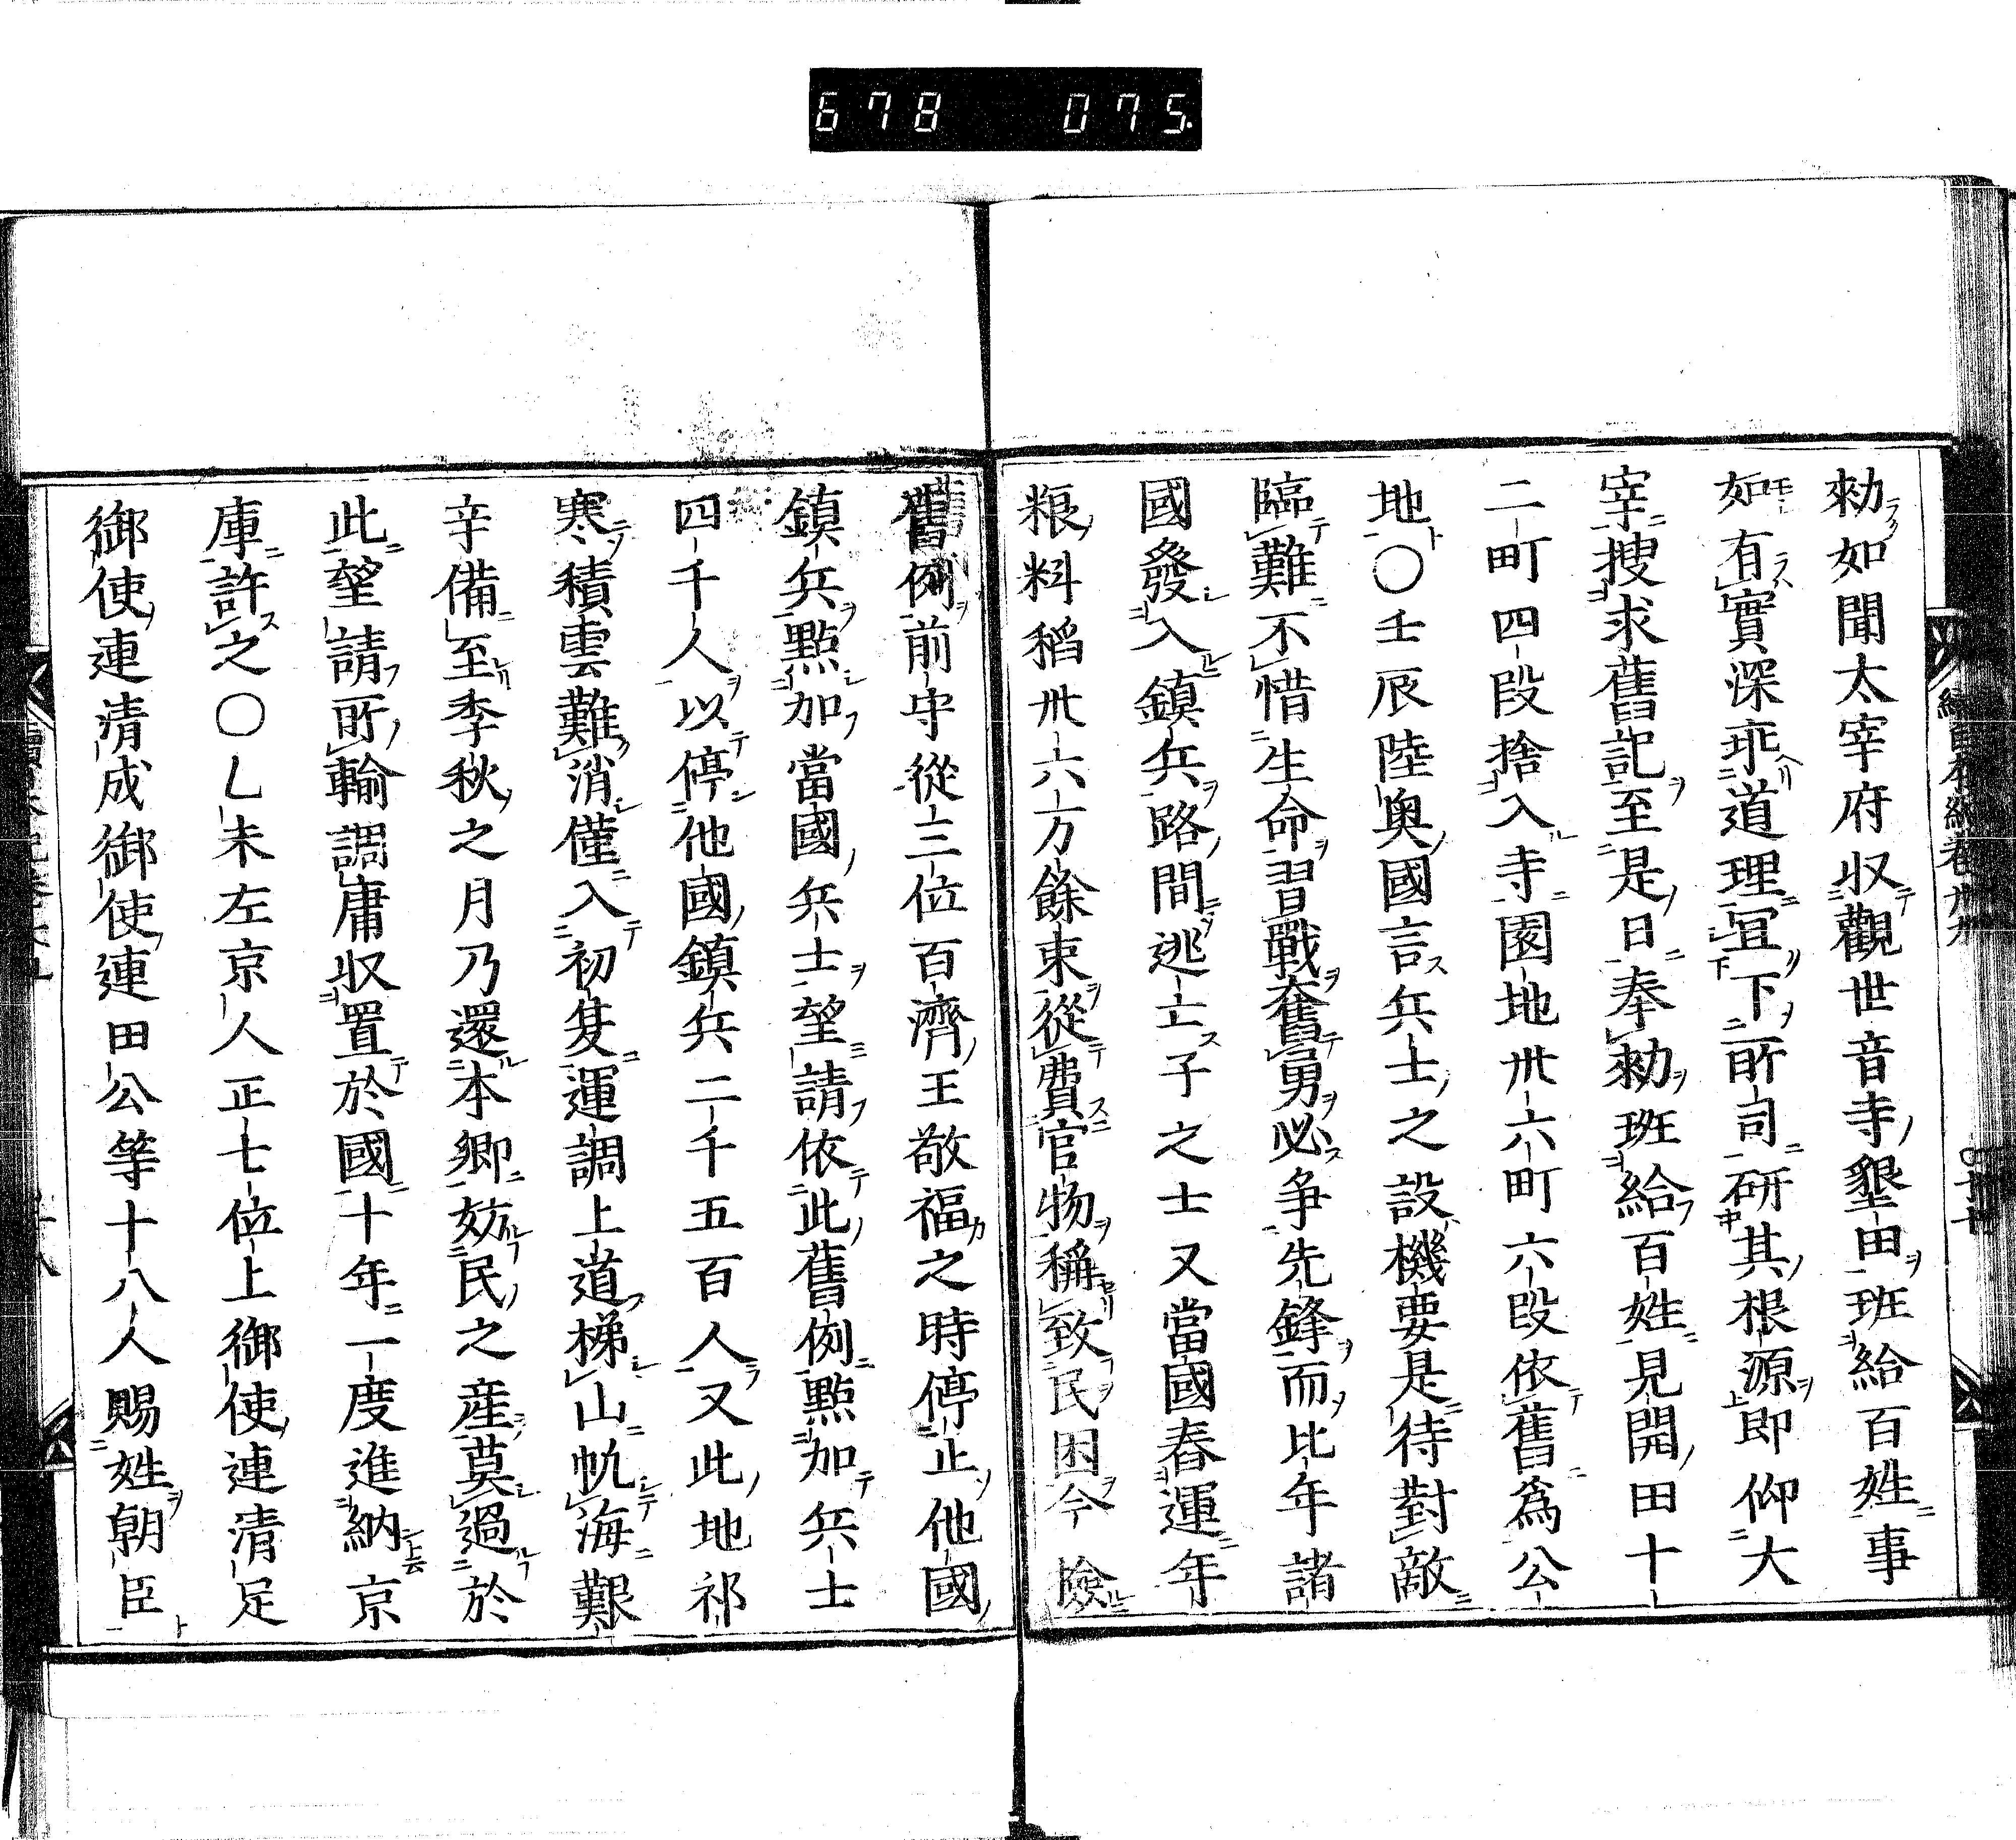 678 075
勑如聞太宰府収觀世音寺墾田班給百姓事
如有實深乖道理宜下所司研其根源即仰大
宰搜求舊記至是日奉勑班給百姓見開田十
二町四段捨入寺園地卅六町六段依舊爲公
地〇壬辰陸奥國言兵士之設機要是待對敵
臨難不惜生命習戰奮勇必争先鋒而比年諸
國發入鎮兵路間逃亡子之士又當國舂運年
粮料稻卅六万餘束從費官物稱致民困今險
舊例前守從三位百濟王敬福之時停止他國
鎮兵點加當國兵士望請依此舊例點加兵士
四千人以停他國鎮兵二千五百人又此地祁
寒積雪難消僅入初夏運調上道梯山帆海艱
辛備至季秋之月乃還本郷妨民之産莫過於
此望請所輸調庸収置於國十年一度進納京
庫許之〇乚未左京人正七位上御使連清足
御使連清成御使連田公等十八人賜姓朝臣